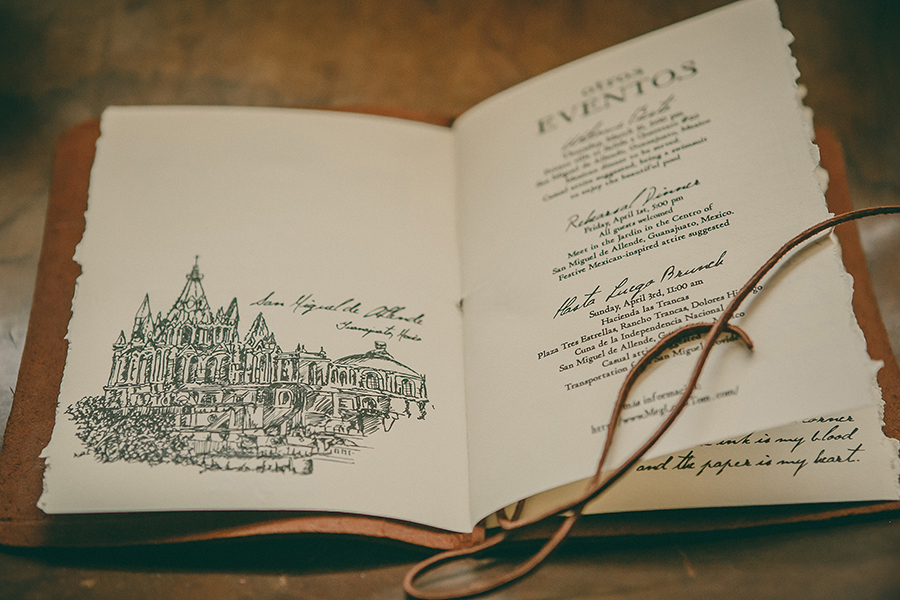 San Miguel de Allende
Guanajuato, Mexico
otros
EVENTOS
Welcome Party
San Miguel de Allende, Guanajuato, Mexico
Mexican dinner to be served.
Casual attire suggested, bring a swimsuit
to enjoy the beautiful pool
Rehearsal Dinner
Friday, April 1st, 5:00 pm
All guests welcomed
Meet in the Jardin in the Centro of
San Miguel de Allende, Guanajuato, Mexico.
Festive Mexican-inspired attire suggested
Hasta Luego Brunch
Sunday, April 3rd, 11:00 am
Hacienda las Trancas
Plaza Tres Estrellas, Rancho Trancas, Dolores Hi go
Cuna de la Independencia Nacional
San Miguel de Allende, G xico
Casual atti
Transportation San Miguel provide
más información
corner
ink is my blood
and the paper is my heart.